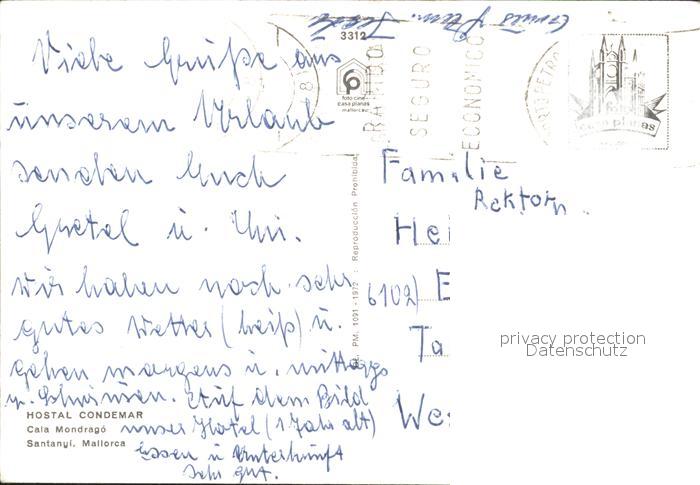 3312
Viele Grüße aus
unserem Urlaub
senden Euch
Gretel u. Uwi.
Wir haben noch sehr
gutes Wetter (heiß) u.
gehen morgens u. mittags
z. Schwimmen. Auf dem Bild
unser Hotel (1 Jahr alt)
Essen u Unterkunft
sehr gut.
HOSTAL CONDEMAR
Cala Mondragó
Santanyí, Mallorca
foto cine
casa planas
mallorca
RAPIDO
SEGURO
ECONOMICO
casa planas
PM. 1091-1972 : Reproducción Prohibida
Familie
Rektor
Hei
6102) E
Ta
We
privacy protection
Datenschutz